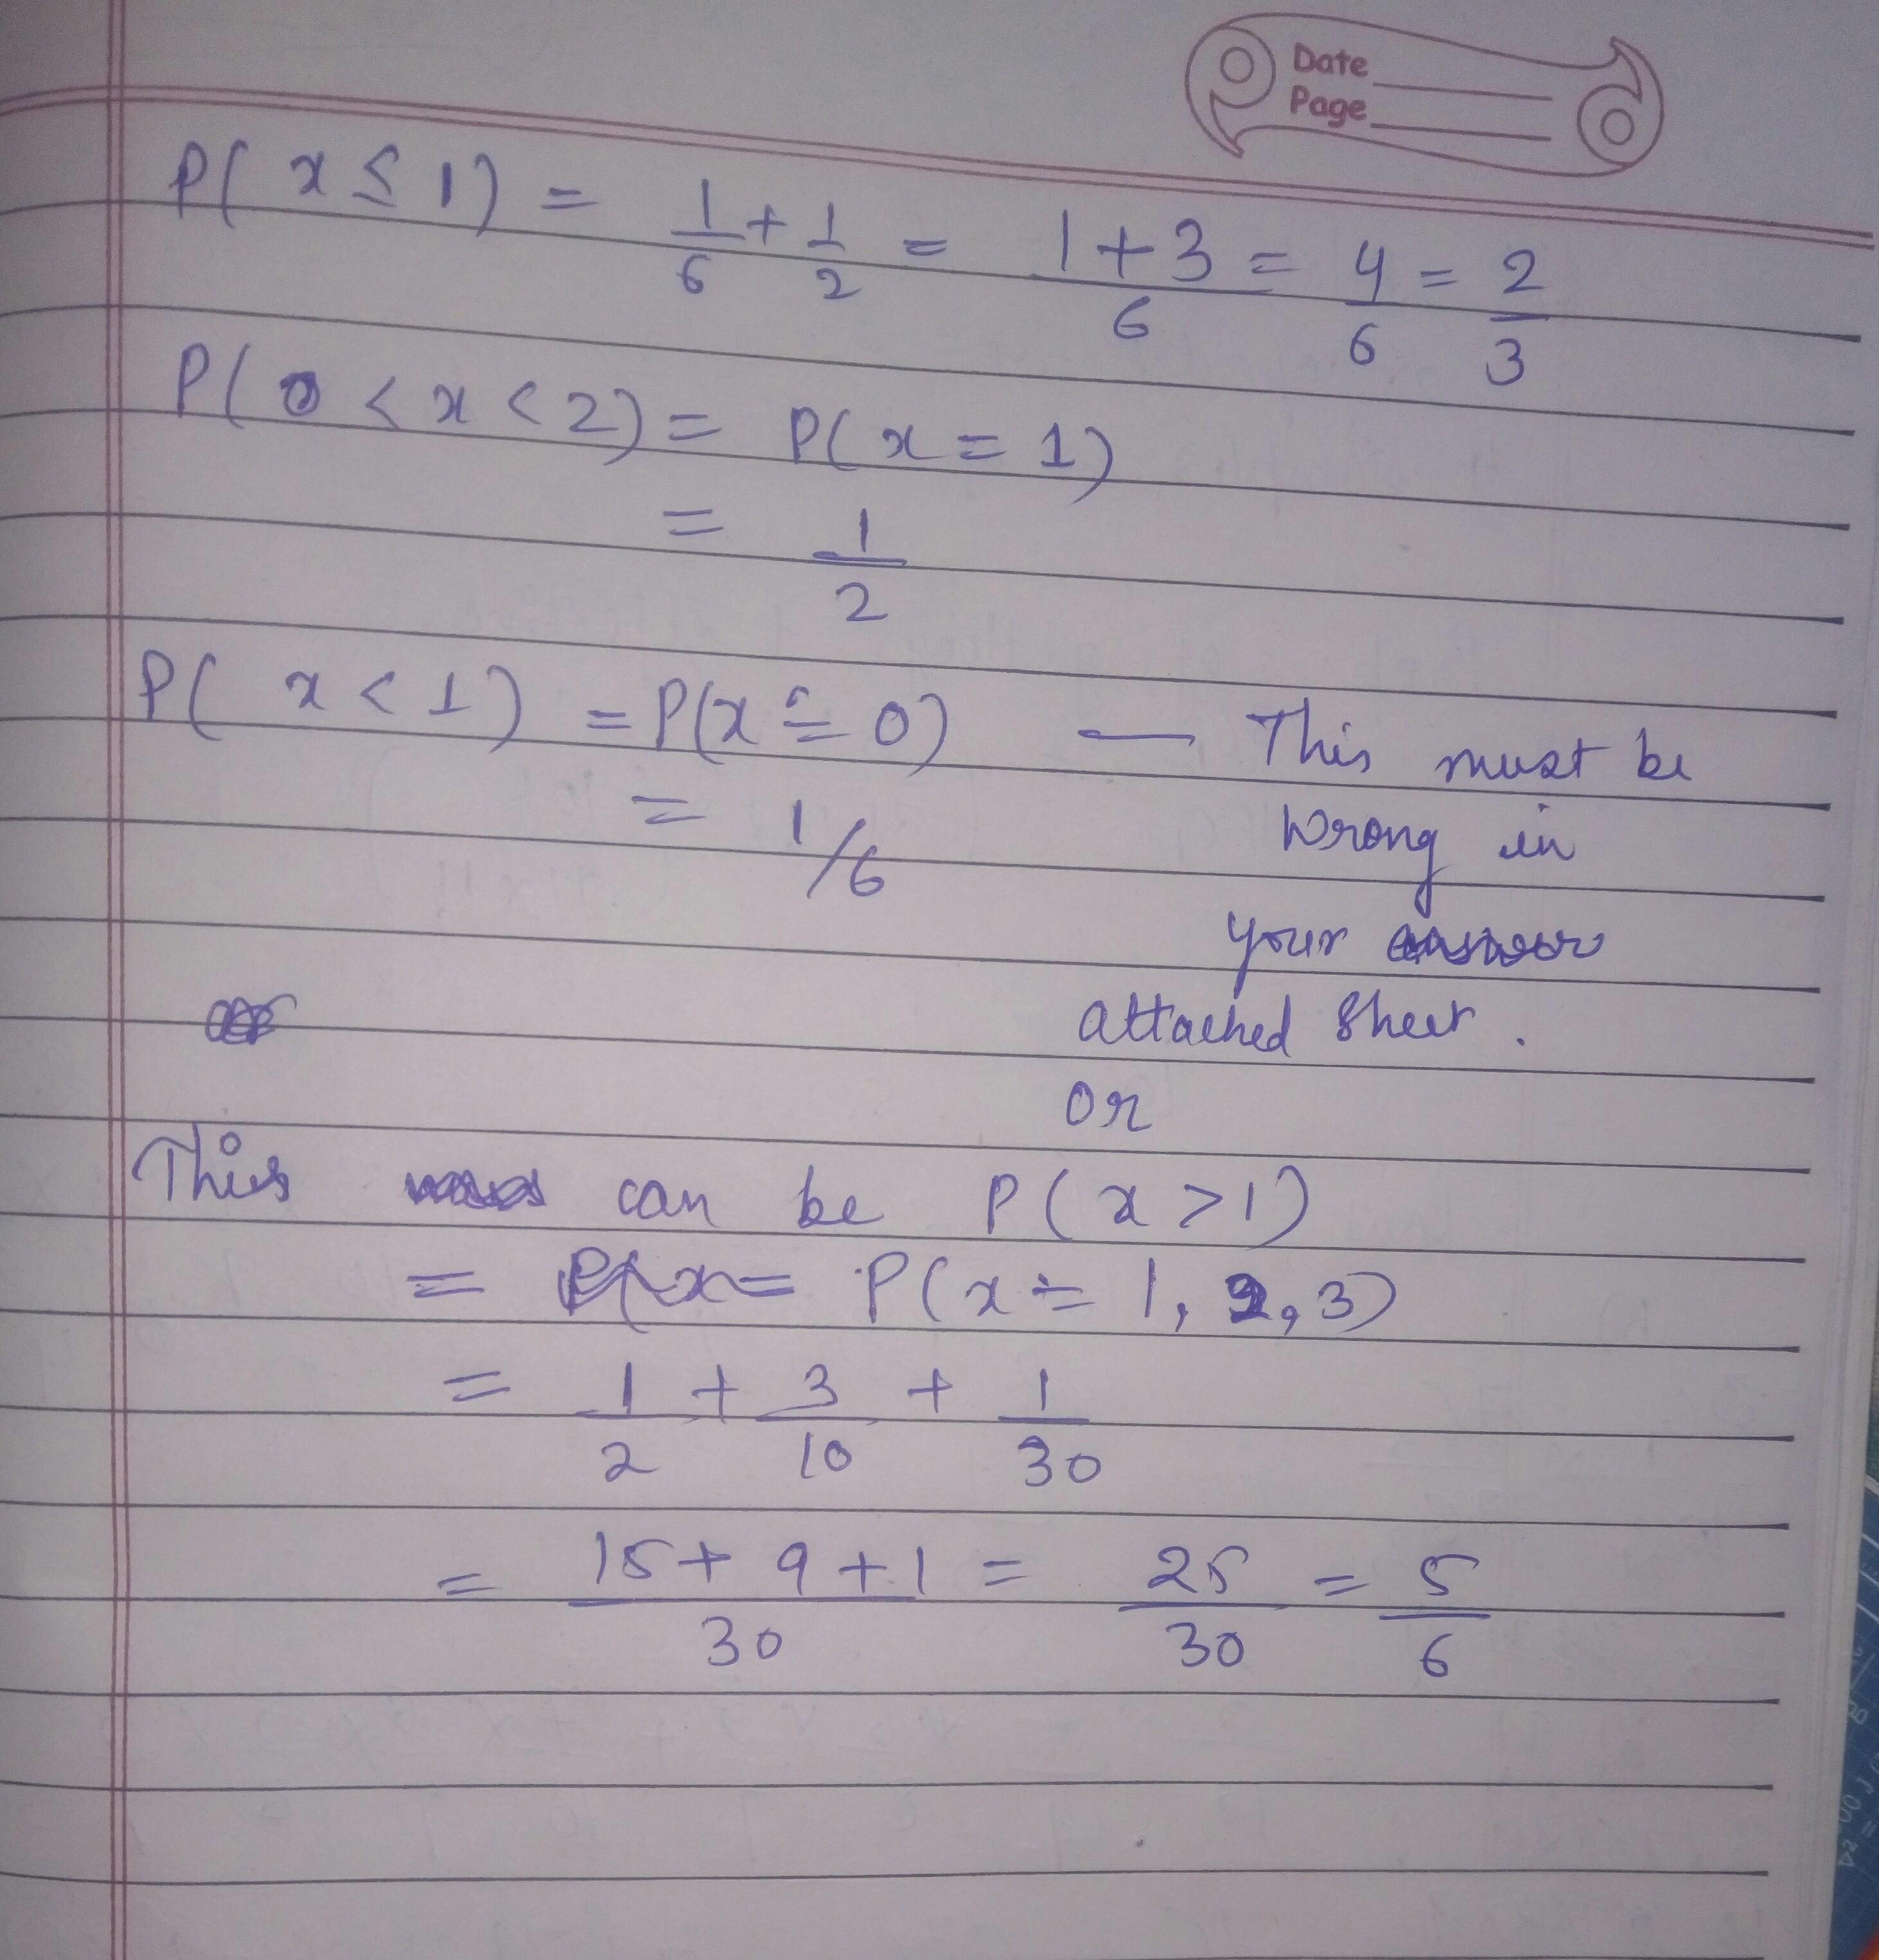 Date
Page
P( x ≤ 1) = 1/6 + 1/2 = 1+3/6 = 4/6 = 2/3
P( 0 < x < 2) = P( x = 1)
= 1/2
P( x < 1) = P(x = 0) — This must be
= 1/6 wrong in
your
attached sheet.
or
This can be P( x > 1)
= P(x = P( x = 1, 2, 3)
= 1/2 + 3/10 + 1/30
= 15 + 9 + 1/30 = 25/30 = 5/6